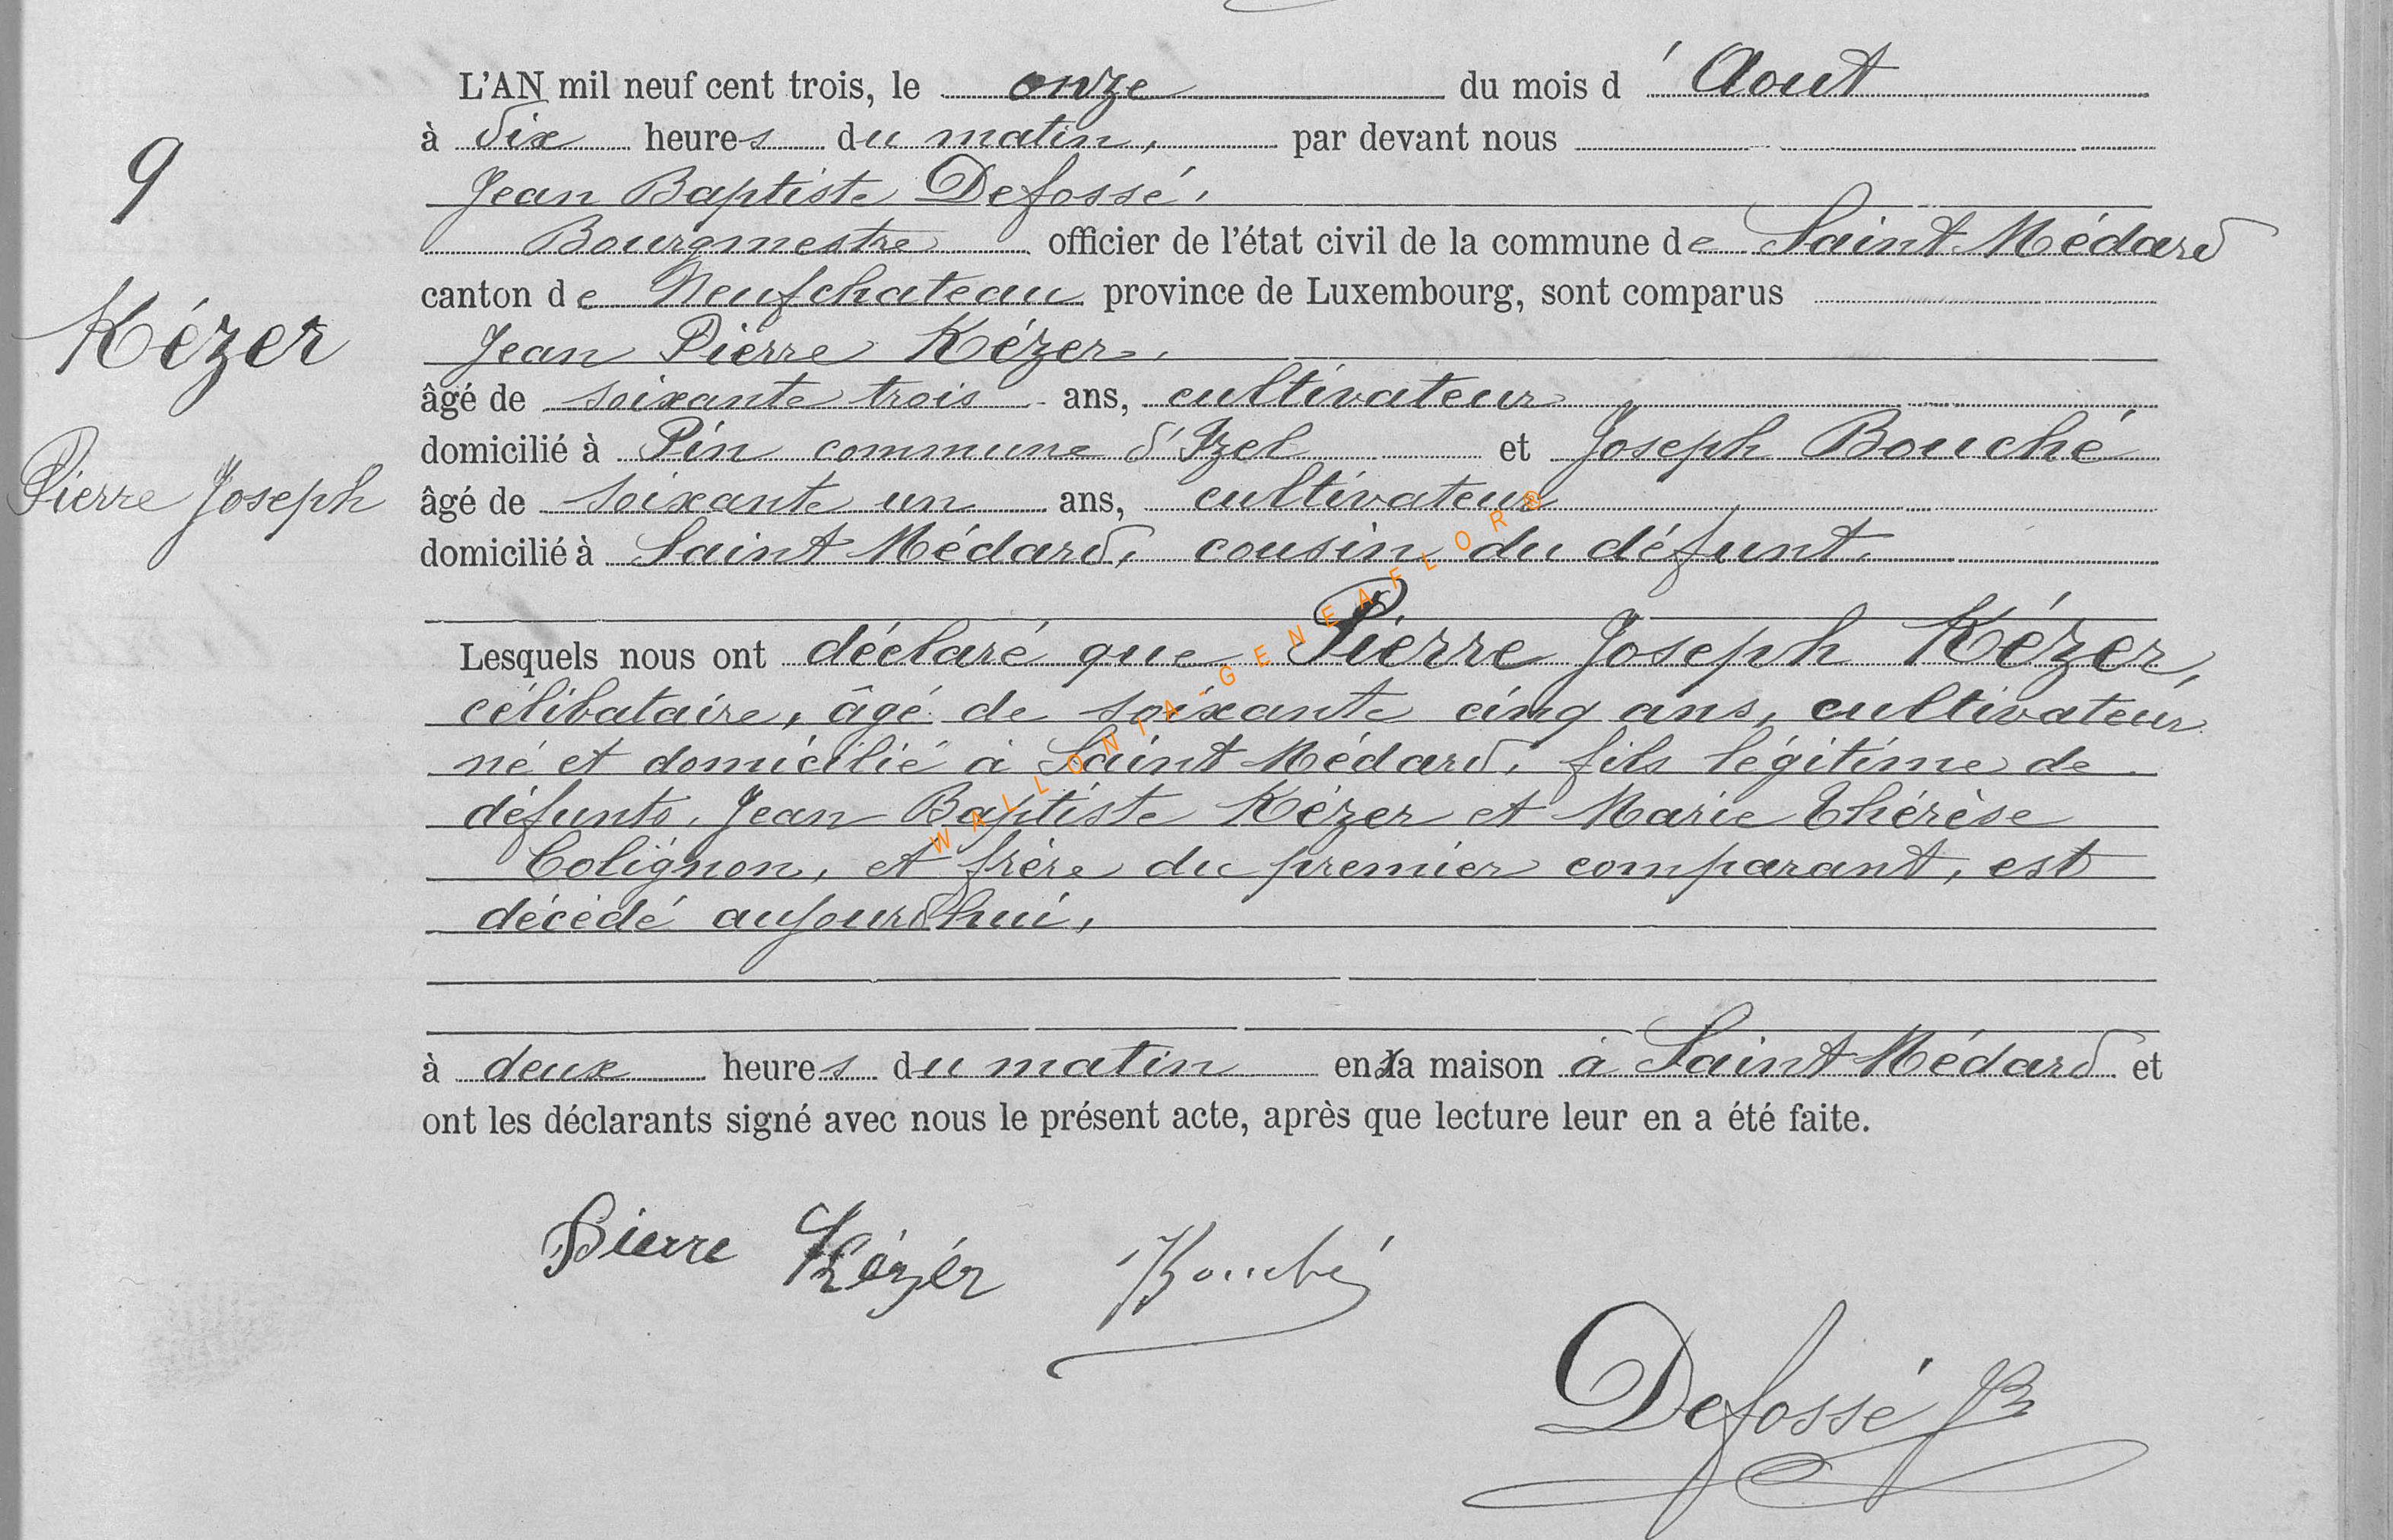 L'AN mil neuf cent trois, le onze du mois d'Aout
à dix heures du matin, par devant nous
9
Jean Baptiste Defossé,
Bourgmestre officier de l'état civil de la commune de Saint Médard
canton de Neufchateau province de Luxembourg, sont comparus
Kézer
Jean Pierre Kézer,
âgé de soixante trois ans, cultivateur
domicilié à Pin commune d'Izel et Joseph Bouché
Pierre Joseph
âgé de soixante un ans, cultivateur
domicilié à Saint Médard, cousin du défunt.
Lesquels nous ont déclaré que Pierre Joseph Kézer,
célibataire, âgé de soixante cinq ans, cultivateur
né et domicilié à Saint Médard, fils légitime de
défunts, Jean Baptiste Kézer et Marie Thérèse
Colignon, et frère du premier comparant, est
décédé aujourd'hui,
à deux heures du matin en sa maison à Saint Médard et
ont les déclarants signé avec nous le présent acte, après que lecture leur en a été faite.
Pierre Kézér Bouché
Defossé JB
WALLONIA-GENEAFLORE